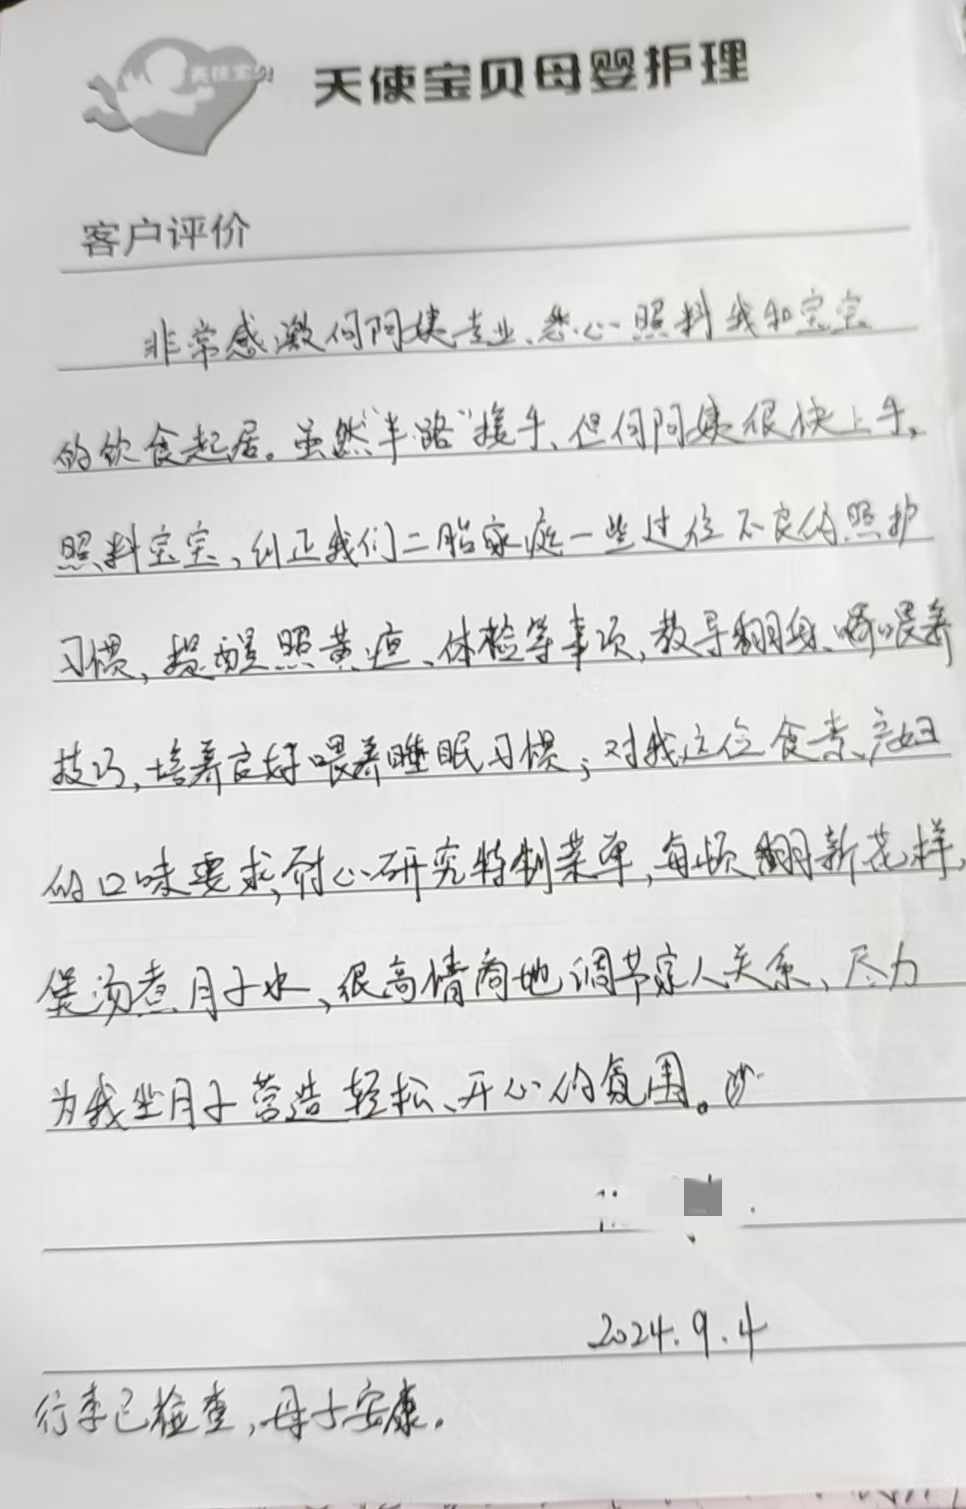 天使宝贝母婴护理
客户评价
非常感激何阿姨专业、悉心照料我和宝宝
的饮食起居。虽然“半路”接手、但何阿姨很快上手，
照料宝宝，纠正我们二胎家庭一些过往不良的照护
习惯，提醒照黄疸、体检等事项，教导翻身、喂养
技巧，培养良好喂养睡眠习惯；对我这位食素产妇
的口味要求，耐心研究特制菜单，每顿翻新花样，
煲汤煮月子水，很高情商地调节家人关系、尽力
为我坐月子营造轻松、开心的氛围。
2024.9.4
行李已检查，母子安康。